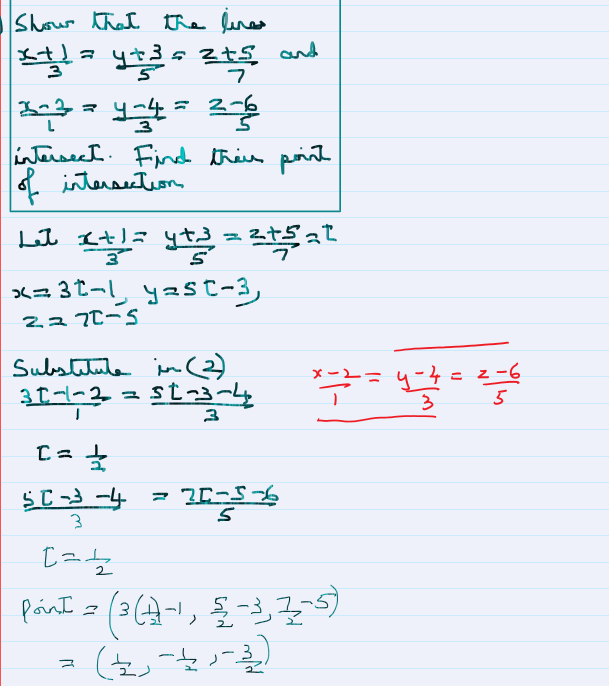 Show that the lines
x+1/3 = y+3/5 = z+5/7 and
x-2/1 = y-4/3 = z-6/5
intersect. Find their point
of intersection
Let x+1/3 = y+3/5 = z+5/7 = t
x = 3t-1, y = 5t-3,
z = 7t-5
Substitute in (2)
3t-1-2/1 = 5t-3-4/3
x-2/1 = y-4/3 = z-6/5
t = 1/2
5t-3-4/3 = 7t-5-6/5
t = 1/2
Point = (3(1/2)-1, 5/2-3, 7/2-5)
= (1/2, -1/2, -3/2)